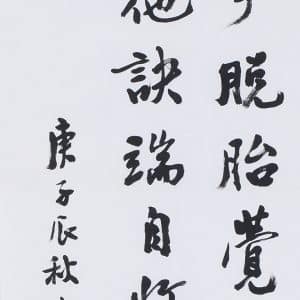 脫胎覺
他訣端自
庚子辰秋